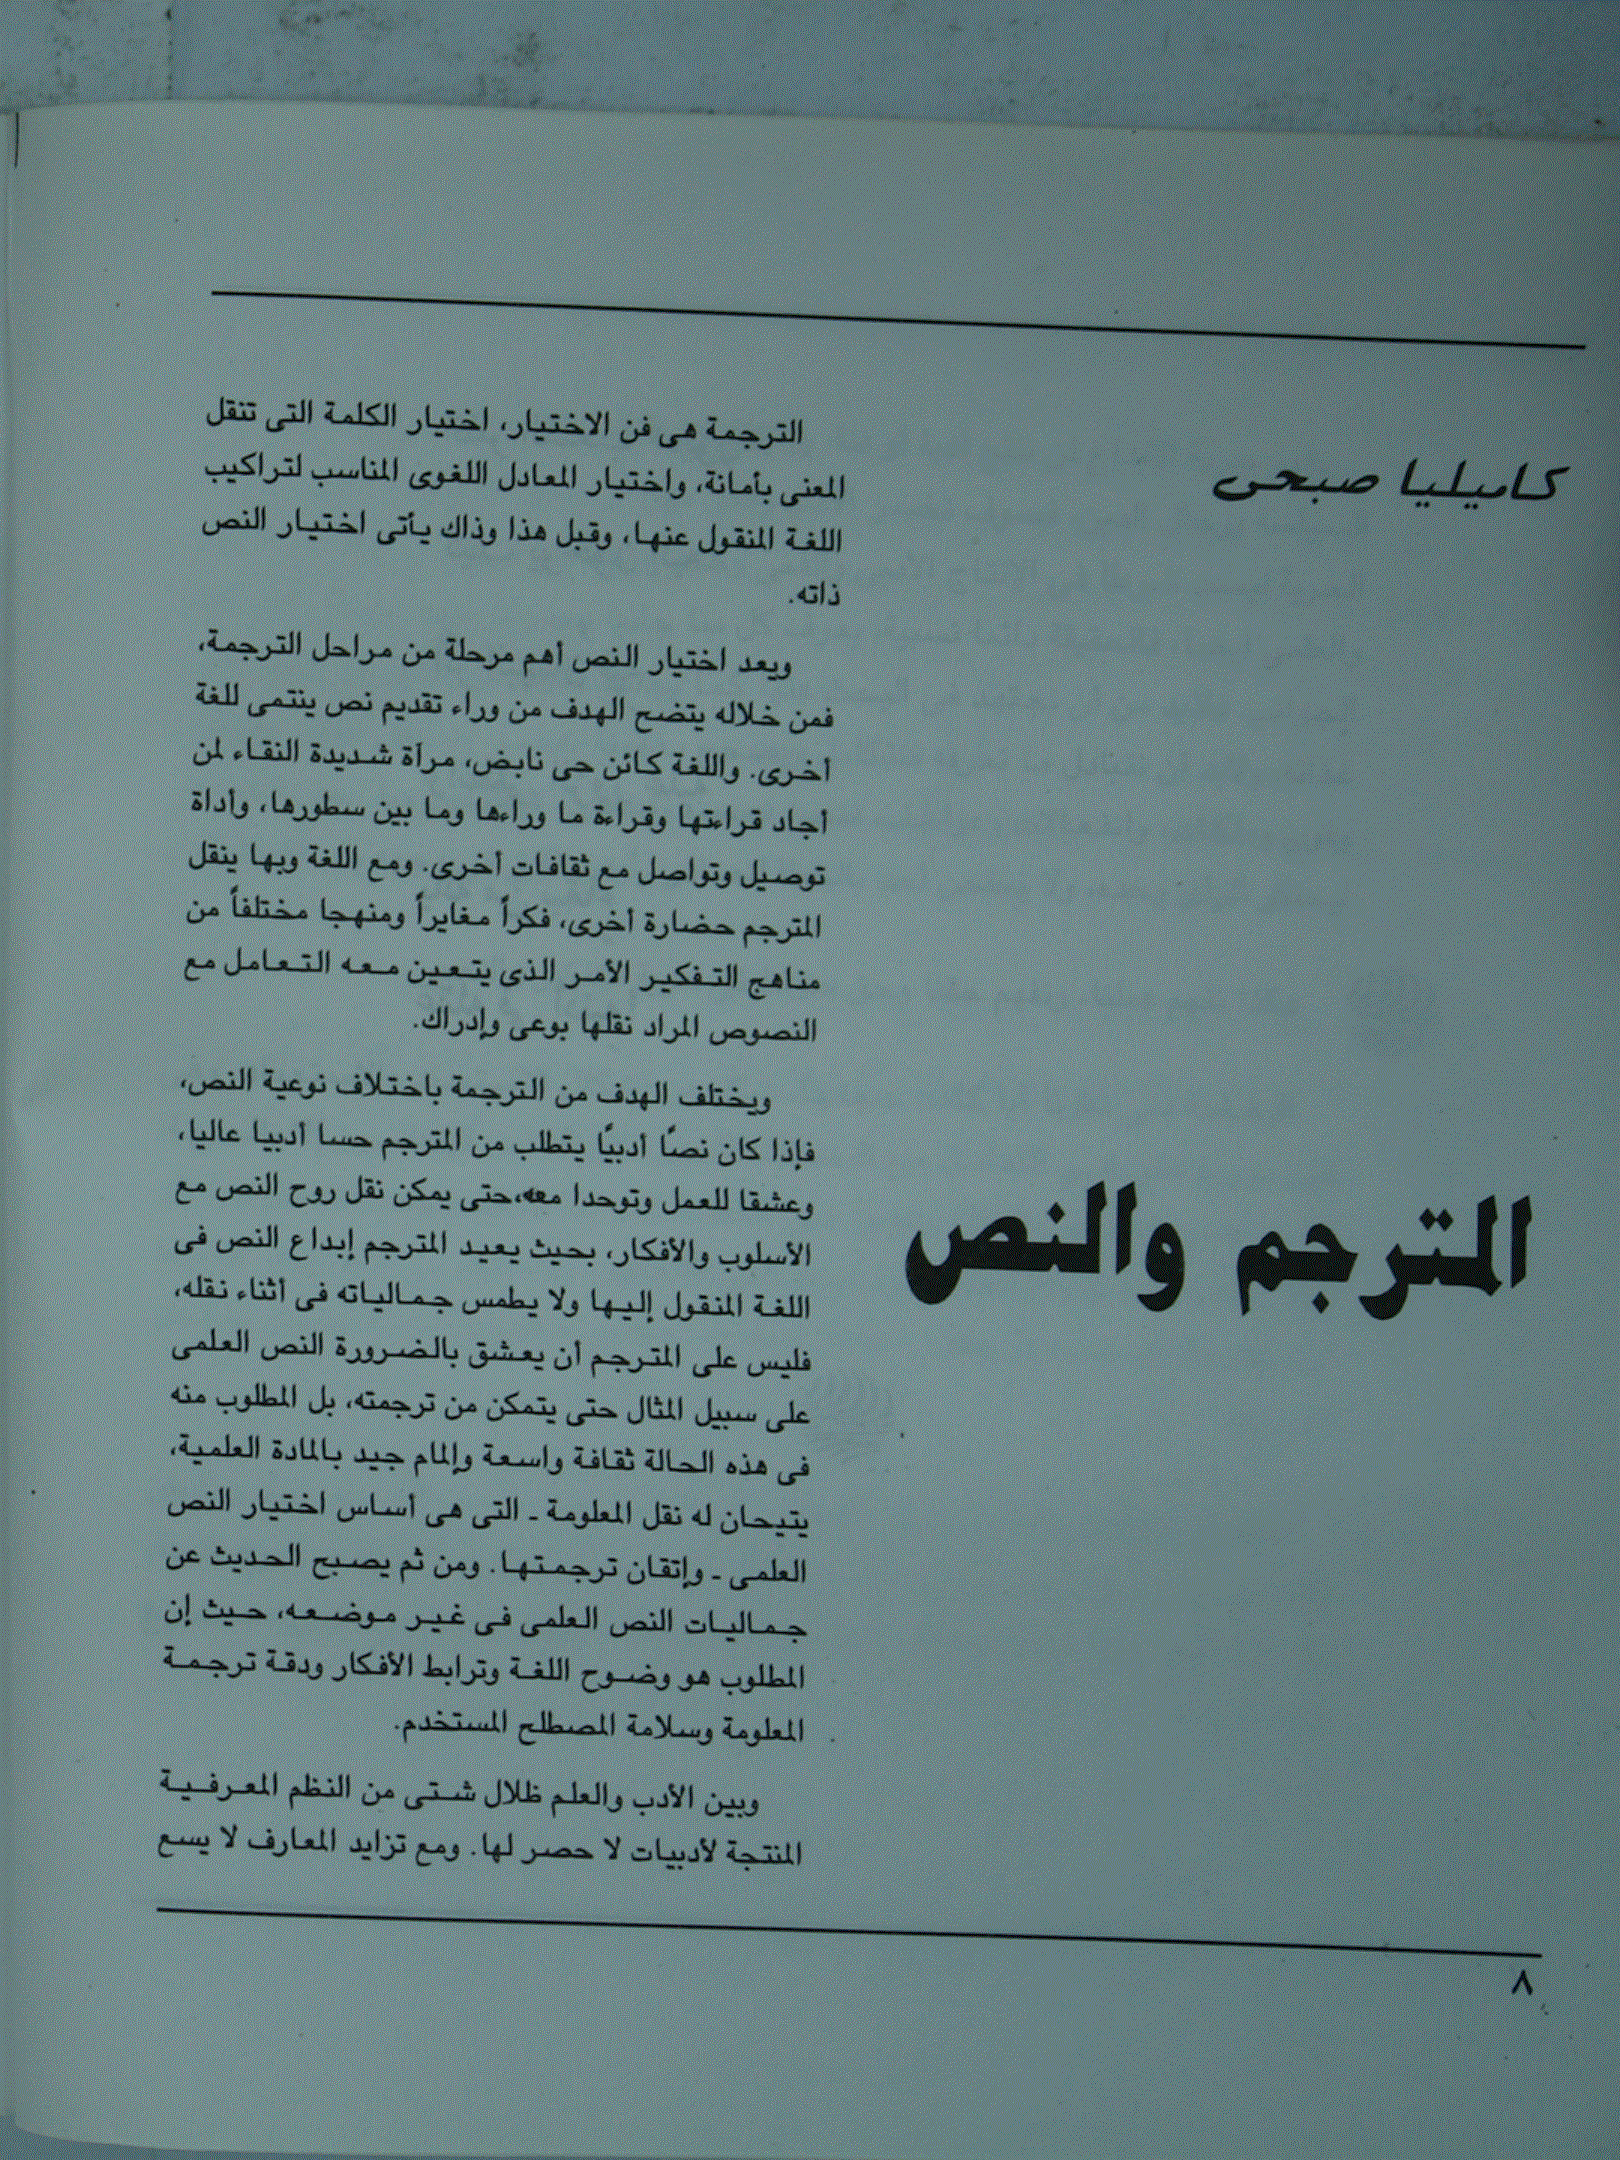 كاميليا صبحى
المترجم والنص
الترجمة هى فن الاختيار، اختيار الكلمة التى تنقل
المعنى بأمانة، واختيار المعادل اللغوى المناسب لتراكيب
اللغة المنقول عنها، وقبل هذا وذاك يأتى اختيار النص
ذاته.
ويعد اختيار النص أهم مرحلة من مراحل الترجمة،
فمن خلاله يتضح الهدف من وراء تقديم نص ينتمى للغة
أخرى. واللغة كائن حى نابض، مرآة شديدة النقاء لمن
أجاد قراءتها وقراءة ما وراءها وما بين سطورها، وأداة
توصيل وتواصل مع ثقافات أخرى. ومع اللغة وبها ينقل
المترجم حضارة أخرى، فكراً مغايراً ومنهجا مختلفاً من
مناهج التفكير الأمر الذى يتعين معه التعامل مع
النصوص المراد نقلها بوعى وإدراك.
ويختلف الهدف من الترجمة باختلاف نوعية النص،
فإذا كان نصًا أدبيًا يتطلب من المترجم حسا أدبيا عاليا،
وعشقا للعمل وتوحدا معه،حتى يمكن نقل روح النص مع
الأسلوب والأفكار، بحيث يعيد المترجم إبداع النص فى
اللغة المنقول إليها ولا يطمس جمالياته فى أثناء نقله،
فليس على المترجم أن يعشق بالضرورة النص العلمى
على سبيل المثال حتى يتمكن من ترجمته، بل المطلوب منه
فى هذه الحالة ثقافة واسعة وإلمام جيد بالمادة العلمية،
يتيحان له نقل المعلومة ـ التى هى أساس اختيار النص
العلمى ـ وإتقان ترجمتها. ومن ثم يصبح الحديث عن
جماليات النص العلمى فى غير موضعه، حيث إن
المطلوب هو وضوح اللغة وترابط الأفكار ودقة ترجمة
المعلومة وسلامة المصطلح المستخدم.
وبين الأدب والعلم ظلال شتى من النظم المعرفية
المنتجة لأدبيات لا حصر لها. ومع تزايد المعارف لا يسع
٨